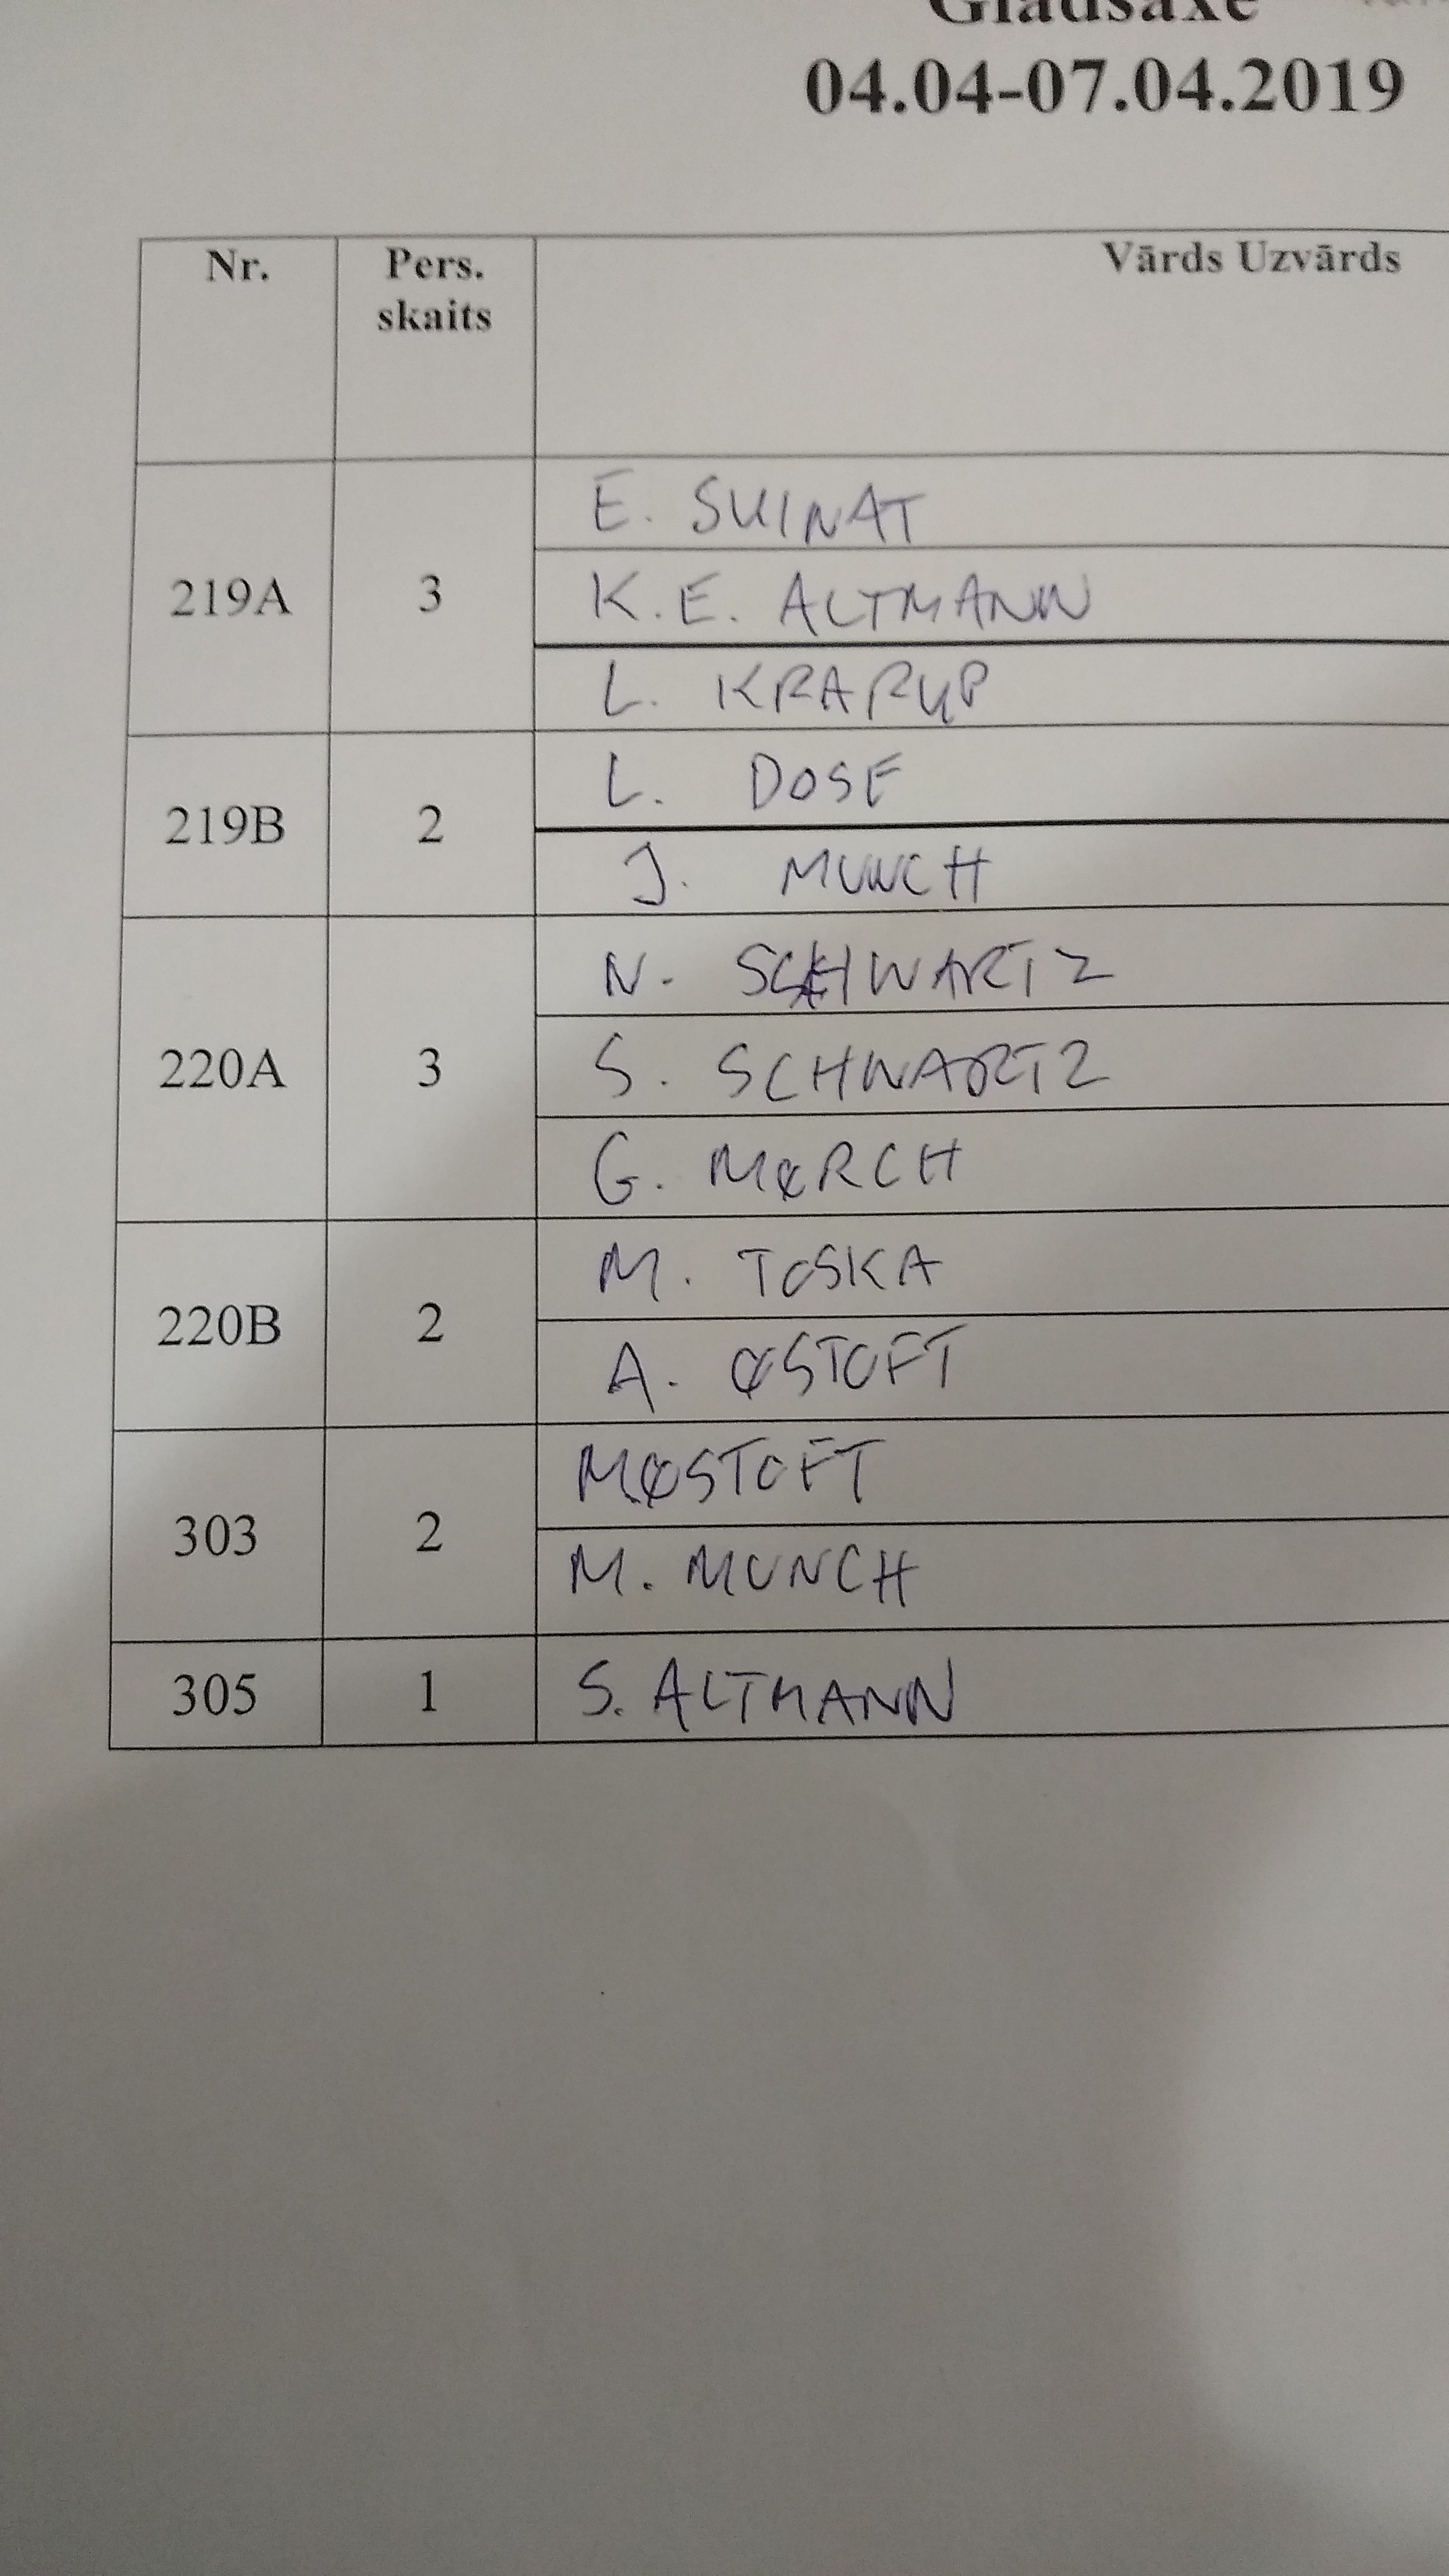 Gladsaxe
04.04-07.04.2019
Nr. Pers. skaits Vārds Uzvārds
219A 3 E. SUINAT
K.E. ALTMANN
L. KRARUP
219B 2 L. DOSE
J. MUNCH
220A 3 N. SCHWARTZ
S. SCHWARTZ
G. MØRCH
220B 2 M. TOSKA
A. ØSTOFT
303 2 M.ØSTOFT
M. MUNCH
305 1 S. ALTMANN